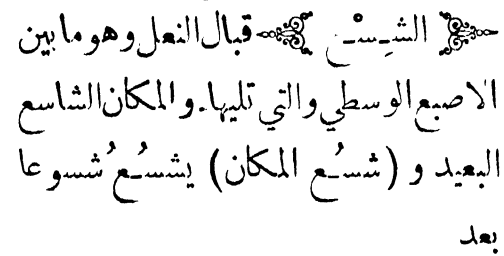 الشِسْـع قبال النعل وهو ما بين
الاصبع الوسطي والتي تليها. والمكان الشاسع
البعيد و (شسُـع المكان) يشسُـع ُشسوعا
بعد